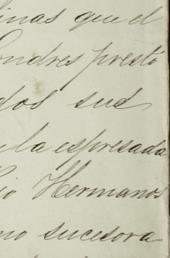 inas que el
ondres prestó
dos sus
la espresada
io Hermanos
mo sucesora